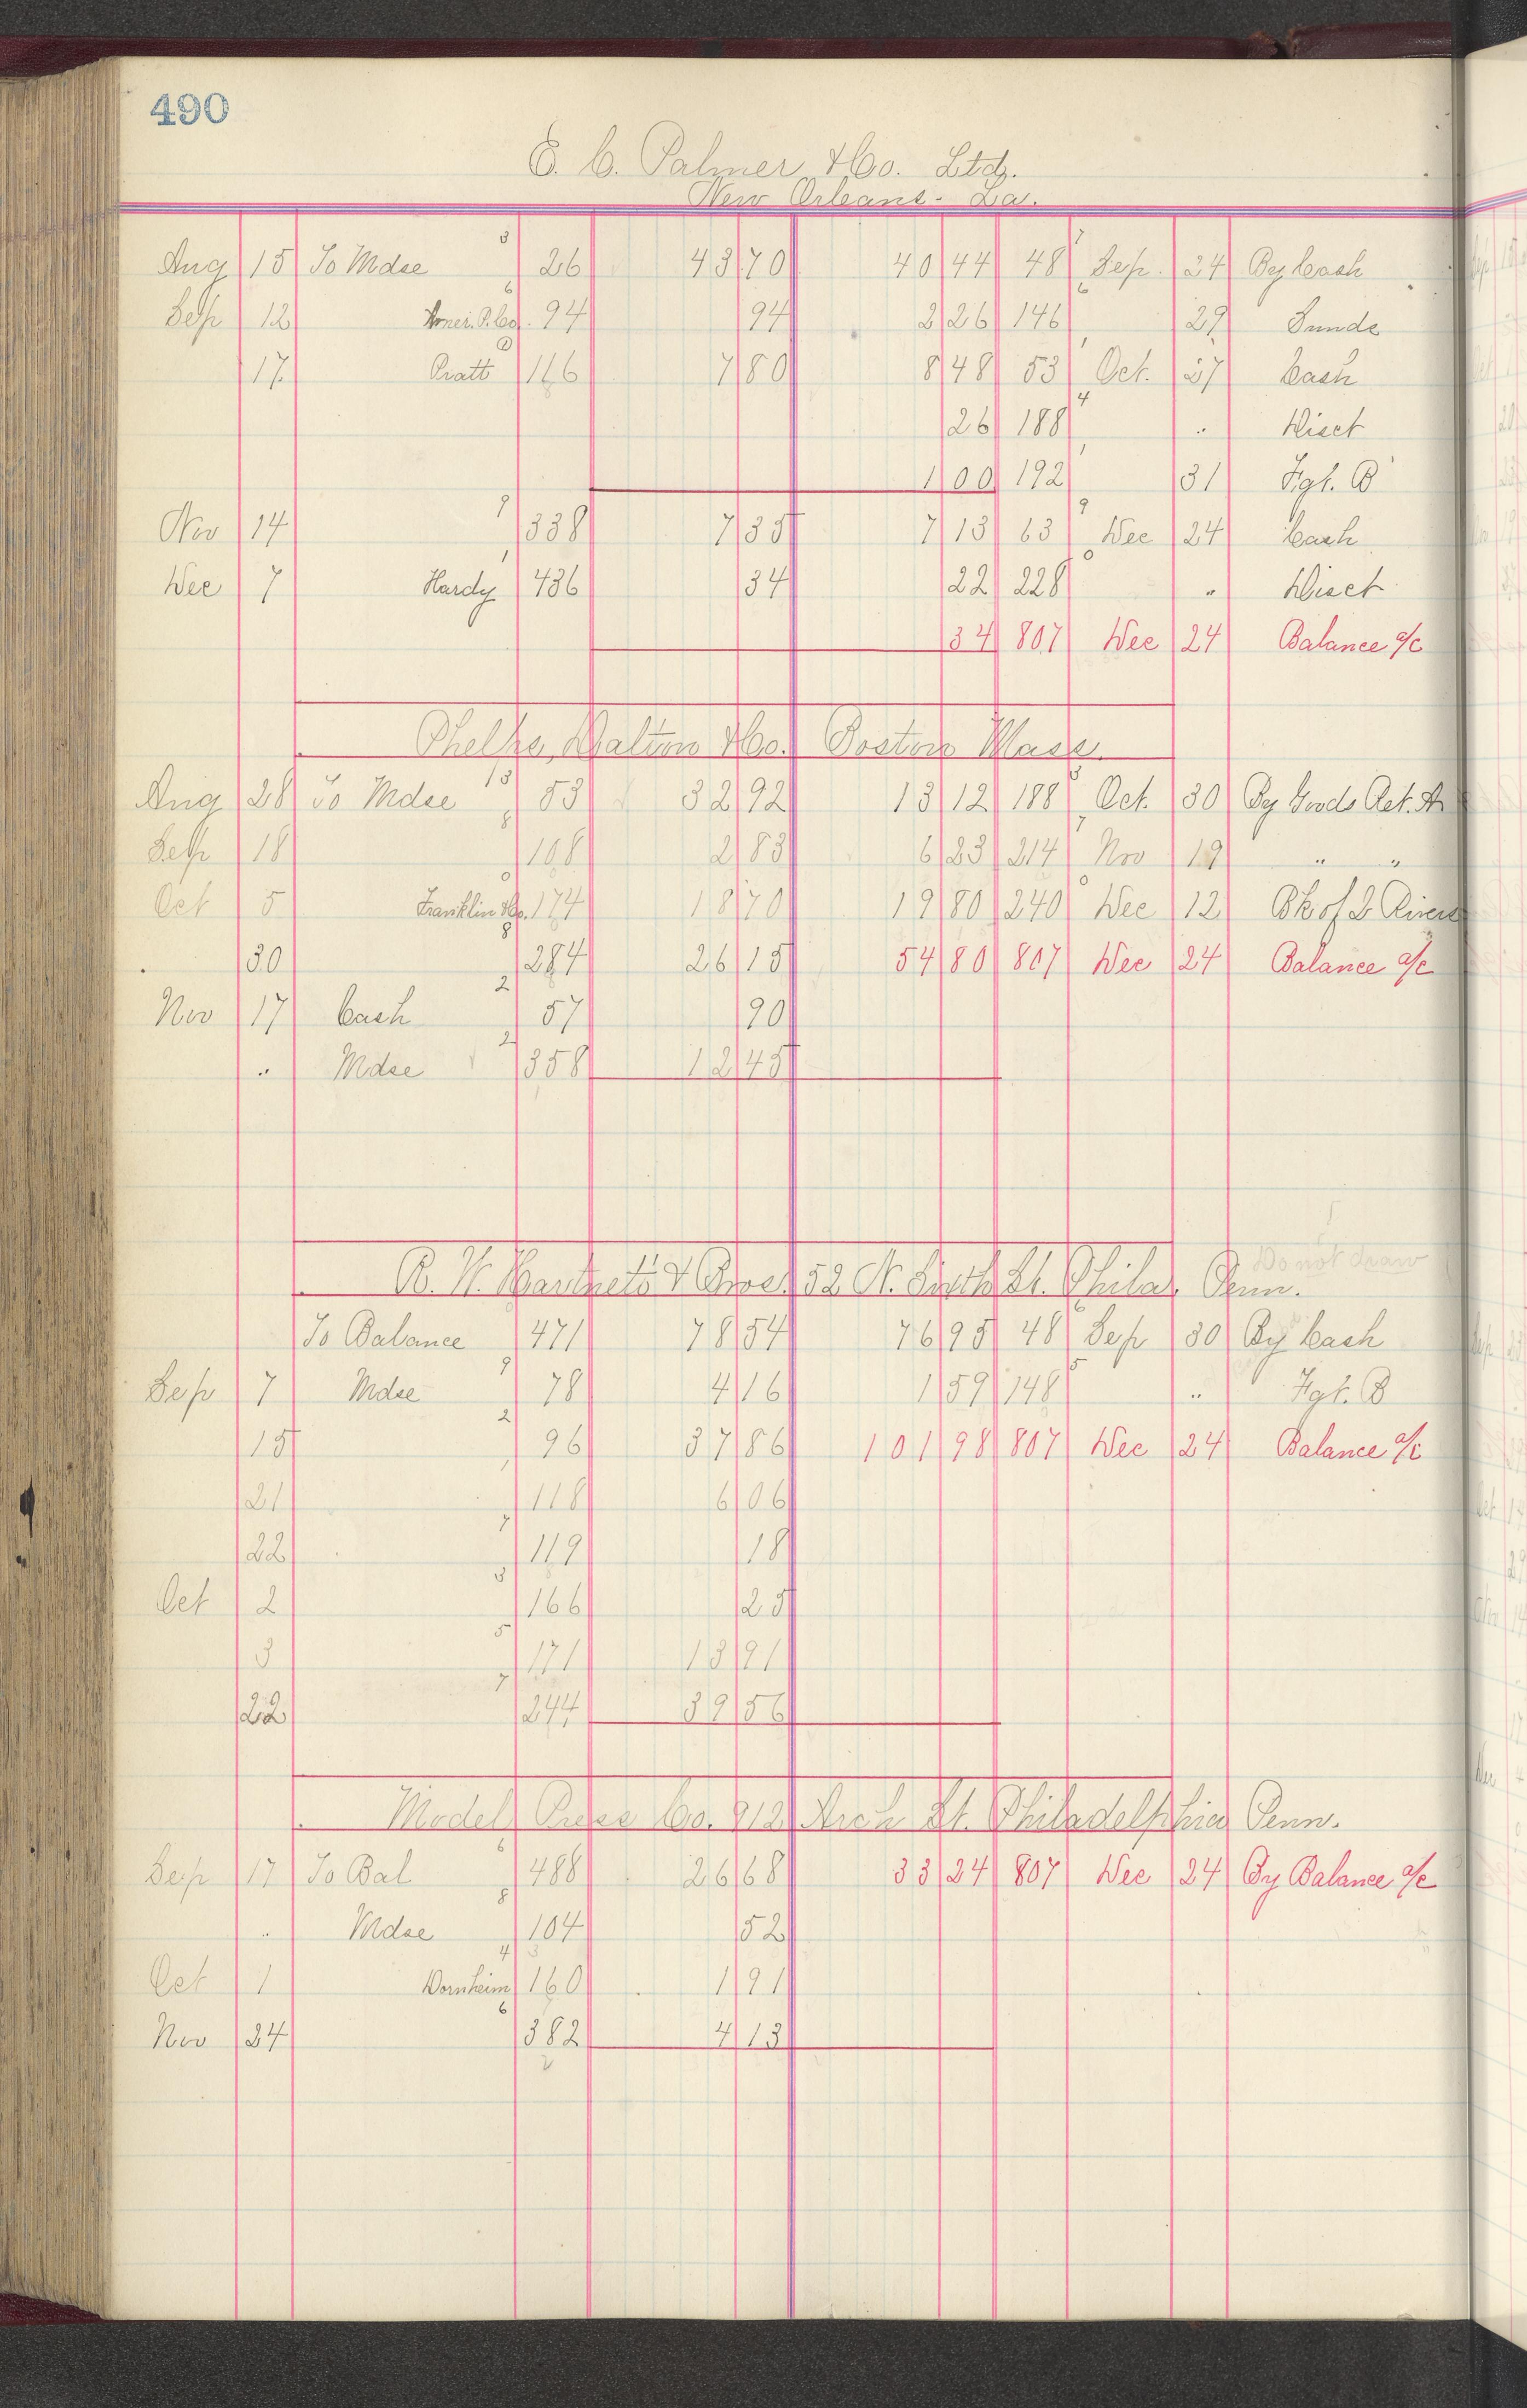 490
E. C. Palmer & Co. Ltd.
New Orleans - La.
Aug 15 To Mdse 3 26 43 70 40 44 48 7 Sep. 24 By Cash
Sep 12 Amer. P. Co. 6 94 94 2 26 146 6 29 Sunds
17 Pratt 116 7 80 8 48 53 Oct. 27 Cash
26 188 4 " Disct
1 00 192 31 Fgt. B
Nov 14 9 338 7 35 7 13 63 9 Dec 24 Cash
Dec 7 Hardy 1 436 34 22 228 0 " Disct
34 807 Dec 24 Balance a/c
Phelps, Dalton & Co. Boston Mass.
Aug 28 To Mdse 13 53 32 92 13 12 188 3 Oct. 30 By Goods Ret. A
Sep 18 8 108 2 83 6 23 214 7 Nov 19 " "
Oct 5 Franklin Co. 0 174 18 70 19 80 240 0 Dec 12 Bk of 3 Rivers
30 8 284 26 15 54 80 807 Dec 24 Balance a/c
Nov 17 Cash 2 57 90
" Mdse 2 358 12 45
Do not draw
R. W. Hartnett & Bros. 52 N. Sixth St. Phila. Penn.
To Balance 471 78 54 76 95 48 6 Sep 30 By Cash
Sep 7 Mdse 9 78 4 16 1 59 148 5 " Fgt. B
15 2 96 37 86 101 98 807 Dec 24 Balance a/c
21 1 118 6 06
22 7 119 18
Oct 2 3 166 25
3 5 171 13 91
22 7 244 39 56
Model Press Co. 912 Arch St. Philadelphia Penn.
Sep 17 To Bal 6 488 26 68 33 24 807 Dec 24 By Balance a/c
" Mdse 8 104 52
Oct 1 Dornheim 4 160 1 91
Nov 24 6 382 4 13